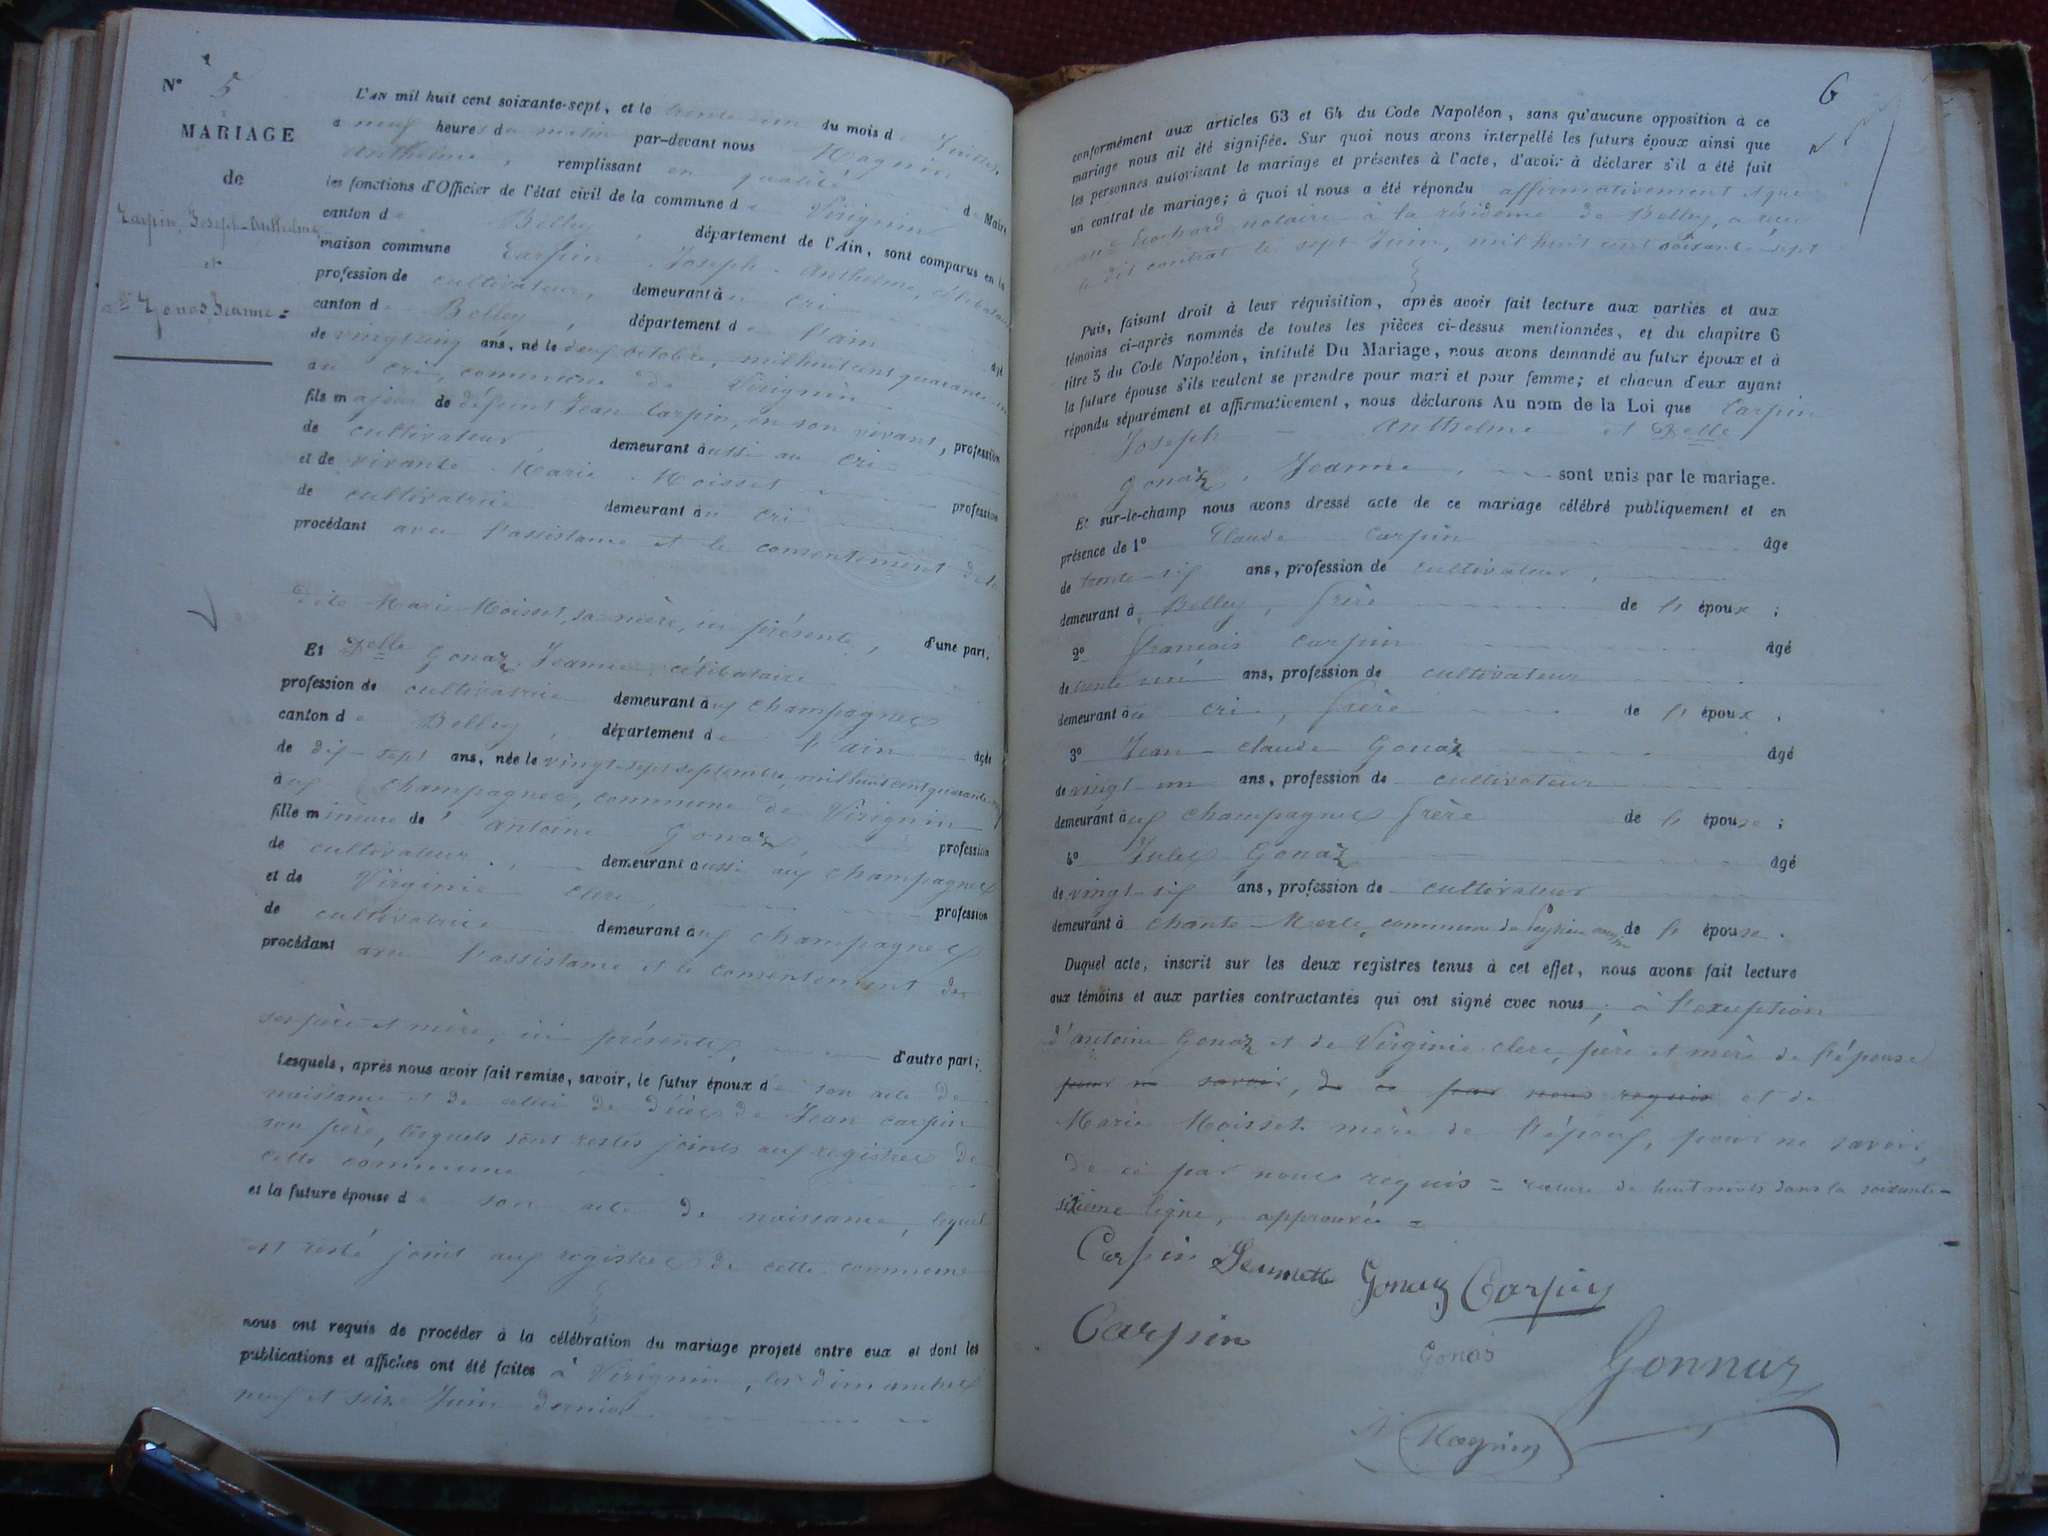 N° 5
MARIAGE
de
Carpin, Joseph-Anthelme
et
Dlle Gonaz Jeanne =
L'AN mil huit cent soixante-sept, et le trente-un du mois de Juillet,
à neuf heures du matin par-devant nous Magnin
Anthelme, remplissant en qualité de Maire
les fonctions d'Officier de l'état civil de la commune de Virignin
canton de Belley, département de l'Ain, sont comparus en la
maison commune Carpin Joseph-Anthelme, célibataire
profession de cultivateur, demeurant à cri
canton de Belley, département de l'ain âgé
de vingt cinq ans, né le deux octobre, mil huit cent quarante un
au cri, commune de Virignin
fils majeur de défunt Jean Carpin, en son vivant, profession
de cultivateur demeurant aussi au cri
et de vivante Marie Moisset profession
de cultivatrice demeurant au cri
procédant avec l'assistance et le consentement de la
dite Marie Moisset, sa mère, ici présente, d'une part.
Et Delle Gonaz Jeanne, célibataire
profession de cultivatrice demeurant aux champagnes
canton de Belley, département de l'ain âgée
de dix-sept ans, née le vingt-sept septembre, mil huit cent quarante-neuf
aux champagnes, commune de Virignin
fille mineure de antoine Gonaz profession
de cultivateur, demeurant aussi aux champagnes
et de Virginie clerc, profession
de cultivatrice demeurant aux champagnes
procédant avec l'assistance et le consentement de
ses père et mère, ici présents, d'autre part;
Lesquels, après nous avoir fait remise, savoir, le futur époux de son acte de
naissance et de celui de décès de Jean carpin
son père, lesquels sont restés joints aux registres de
cette commune
et la future épouse de son acte de naissance, lequel
est resté joint aux registres de cette commune
nous ont requis de procéder à la célébration du mariage projeté entre eux et dont les
publications et affiches ont été faites à Virignin, les dimanches
neuf et seize Juin dernier
6
conformément aux articles 63 et 64 du Code Napoléon, sans qu'aucune opposition à ce
mariage nous ait été signifiée. Sur quoi nous avons interpellé les futurs époux ainsi que
les personnes autorisant le mariage et présentes à l'acte, d'avoir à déclarer s'il a été fait
un contrat de mariage; à quoi il nous a été répondu affirmativement et que
notaire à la résidence de Belley, a reçu
le dit contrat le sept Juin, mil huit cent soixante-sept
Puis, faisant droit à leur réquisition, après avoir fait lecture aux parties et aux
témoins ci-après nommés de toutes les pièces ci-dessus mentionnées, et du chapitre 6
titre 5 du Code Napoléon, intitulé Du Mariage, nous avons demandé au futur époux et à
la future épouse s'ils veulent se prendre pour mari et pour femme; et chacun d'eux ayant
répondu séparément et affirmativement, nous déclarons Au nom de la Loi que Carpin
Joseph - Anthelme et Delle
Gonaz, Jeanne, sont unis par le mariage.
Et sur-le-champ nous avons dressé acte de ce mariage célébré publiquement et en
présence de 1° Claude Carpin âgé
de trente-six ans, profession de cultivateur,
demeurant à Belley, frère de l'époux;
2° françois carpin âgé
de trente un ans, profession de cultivateur
demeurant à cri, frère de l'époux.
3° Jean-claude Gonaz âgé
de vingt-un ans, profession de cultivateur
demeurant aux champagnes frère de l'épouse;
4° Jules Gonaz âgé
de vingt-six ans, profession de cultivateur
demeurant à chante-Merle, commune de Peyrieu de l'épouse.
Duquel acte, inscrit sur les deux registres tenus à cet effet, nous avons fait lecture
aux témoins et aux parties contractantes qui ont signé avec nous, à l'exception
d'antoine Gonaz et de Virginie clerc, père et mère de l'épouse
pour ne savoir, de ce par nous requis et de
Marie Moisset mère de l'époux, pour ne savoir,
de ce par nous requis = rature de huit mots dans la soixante-
sixième ligne, approuvée =
Carpin Jeannette Gonaz Carpin
Carpin Gonas Gonnaz
A Magnin